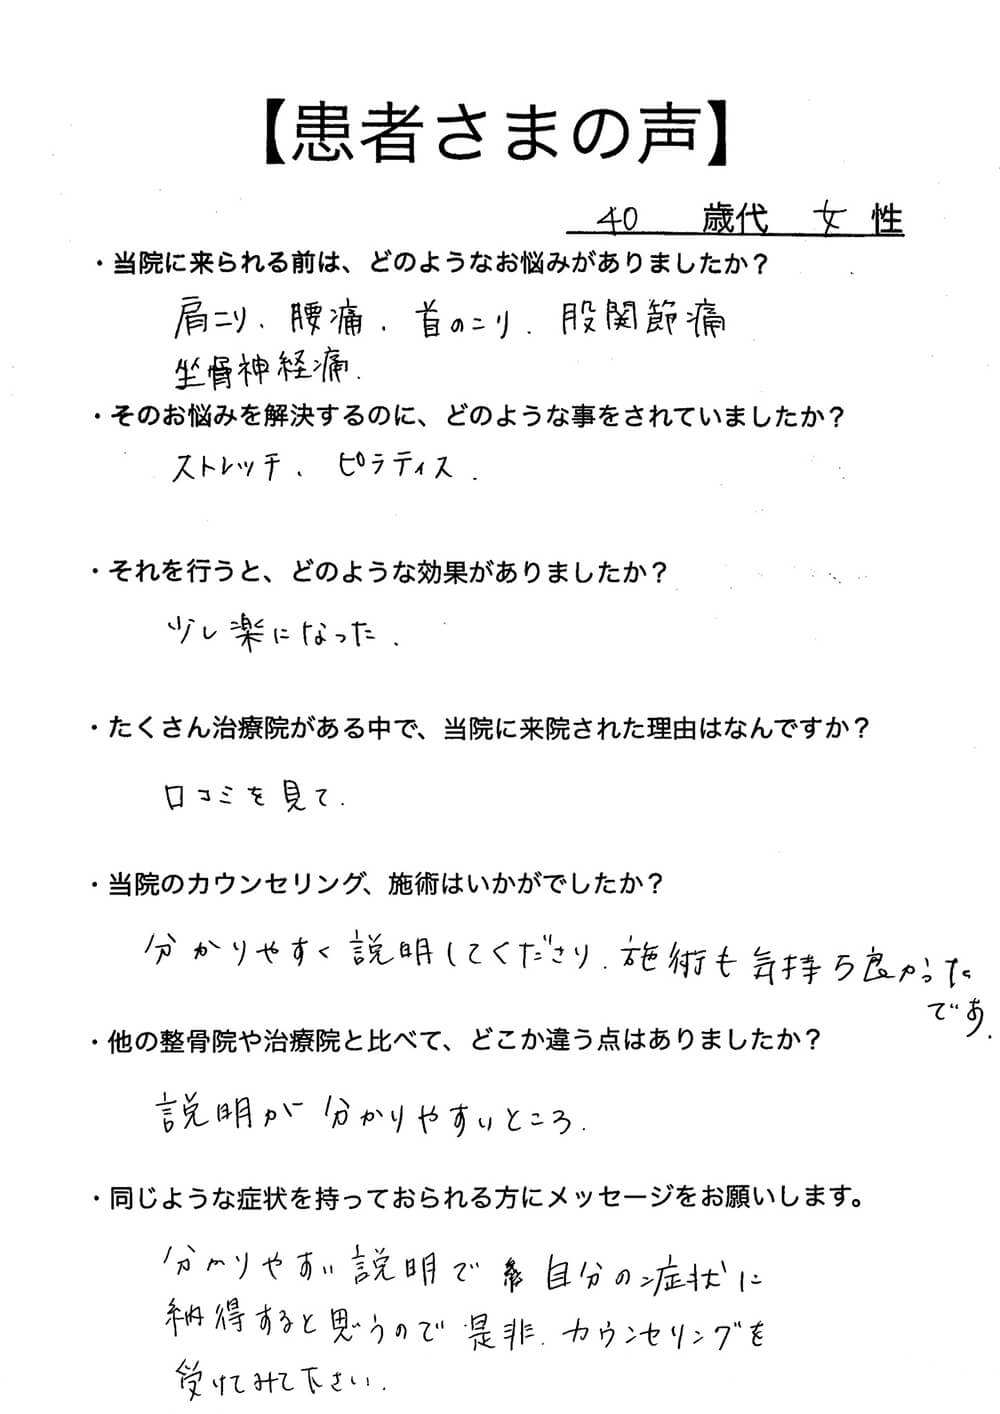 【患者さまの声】
40 歳代 女 性
・当院に来られる前は、どのようなお悩みがありましたか？
肩こり、腰痛、首のこり、股関節痛
坐骨神経痛.
・そのお悩みを解決するのに、どのような事をされていましたか？
ストレッチ、ピラティス.
・それを行うと、どのような効果がありましたか？
少し楽になった.
・たくさん治療院がある中で、当院に来院された理由はなんですか？
口コミを見て.
・当院のカウンセリング、施術はいかがでしたか？
分かりやすく説明してくださり、施術も気持ち良かった
です.
・他の整骨院や治療院と比べて、どこか違う点はありましたか？
説明が分かりやすいところ.
・同じような症状を持っておられる方にメッセージをお願いします。
分かりやすい説明で 自分の症状に
納得すると思うので是非、カウンセリングを
受けてみて下さい.